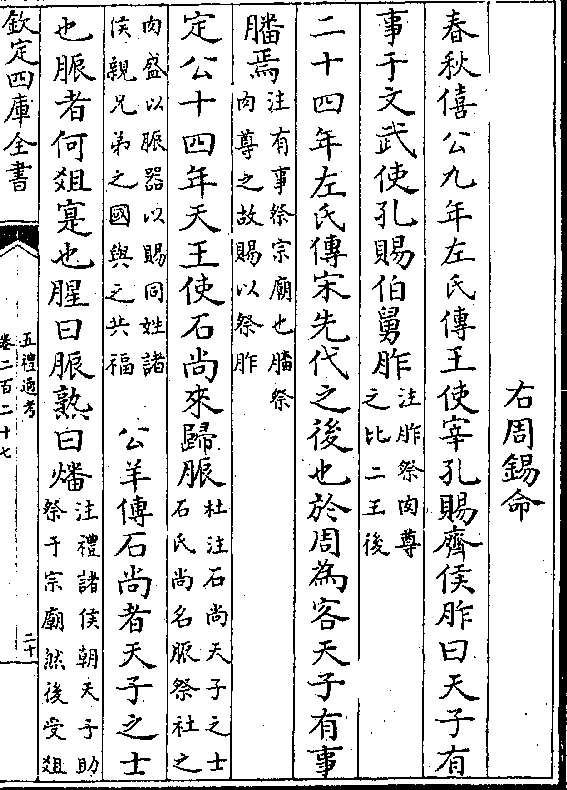 右周錫命
春秋僖公九年左氏傳王使宰孔賜齊侯胙曰天子有
事于文武使孔賜伯舅胙注胙祭肉尊
之比二王後
二十四年左氏傳宋先代之後也於周為客天子有事
膰焉注有事祭宗廟也膰祭
肉尊之故賜以祭胙
定公十四年天王使石尚來歸脤杜注石尚天子之士
石氏尚名脤祭社之
肉盛以脤器以賜同姓諸
侯親兄弟之國與之共福
公羊傳石尚者天子之士
也脤者何俎寔也腥曰脤熟曰燔注禮諸侯朝天子助
祭于宗廟然後受俎
欽定四庫全書
五禮通考
卷二百二十七
二十